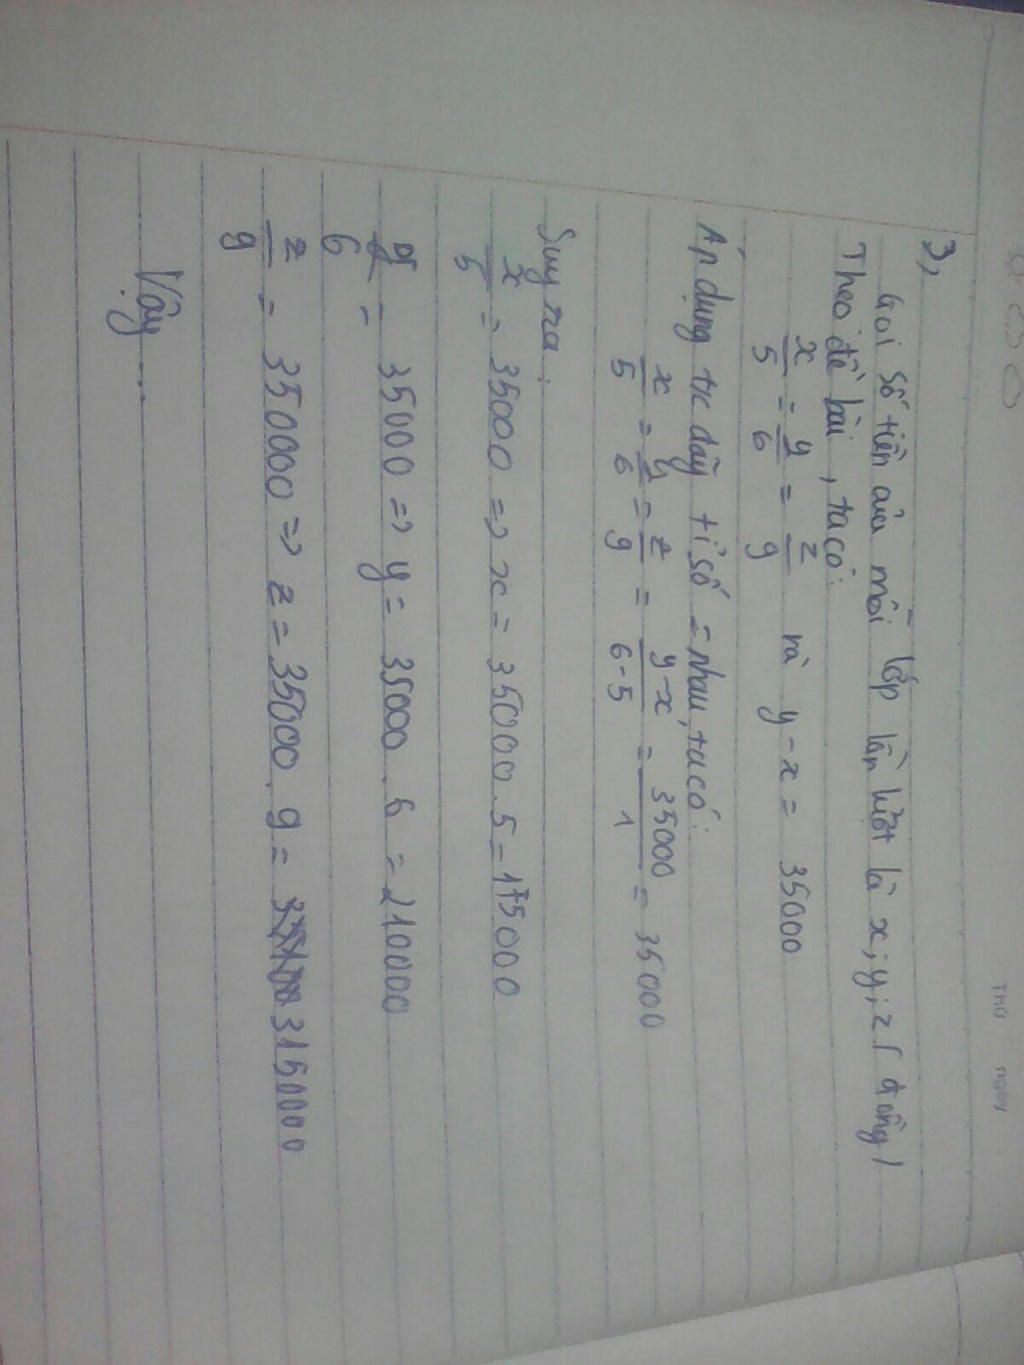 Thứ ngày
3,
Gọi số tiền của mỗi lớp lần lượt là x; y; z (đồng)
Theo đề bài, ta có:
x/5 = y/6 = z/9 và y - x = 35000
Áp dụng tc dãy tỉ số = nhau, ta có:
x/5 = y/6 = z/9 = y-x/6-5 = 35000/1 = 35000
Suy ra:
x/5 = 35000 => x = 35000.5 = 175000
y/6 = 35000 => y = 35000.6 = 210000
z/9 = 350000 => z = 35000.9 = 3150000
Vậy ...